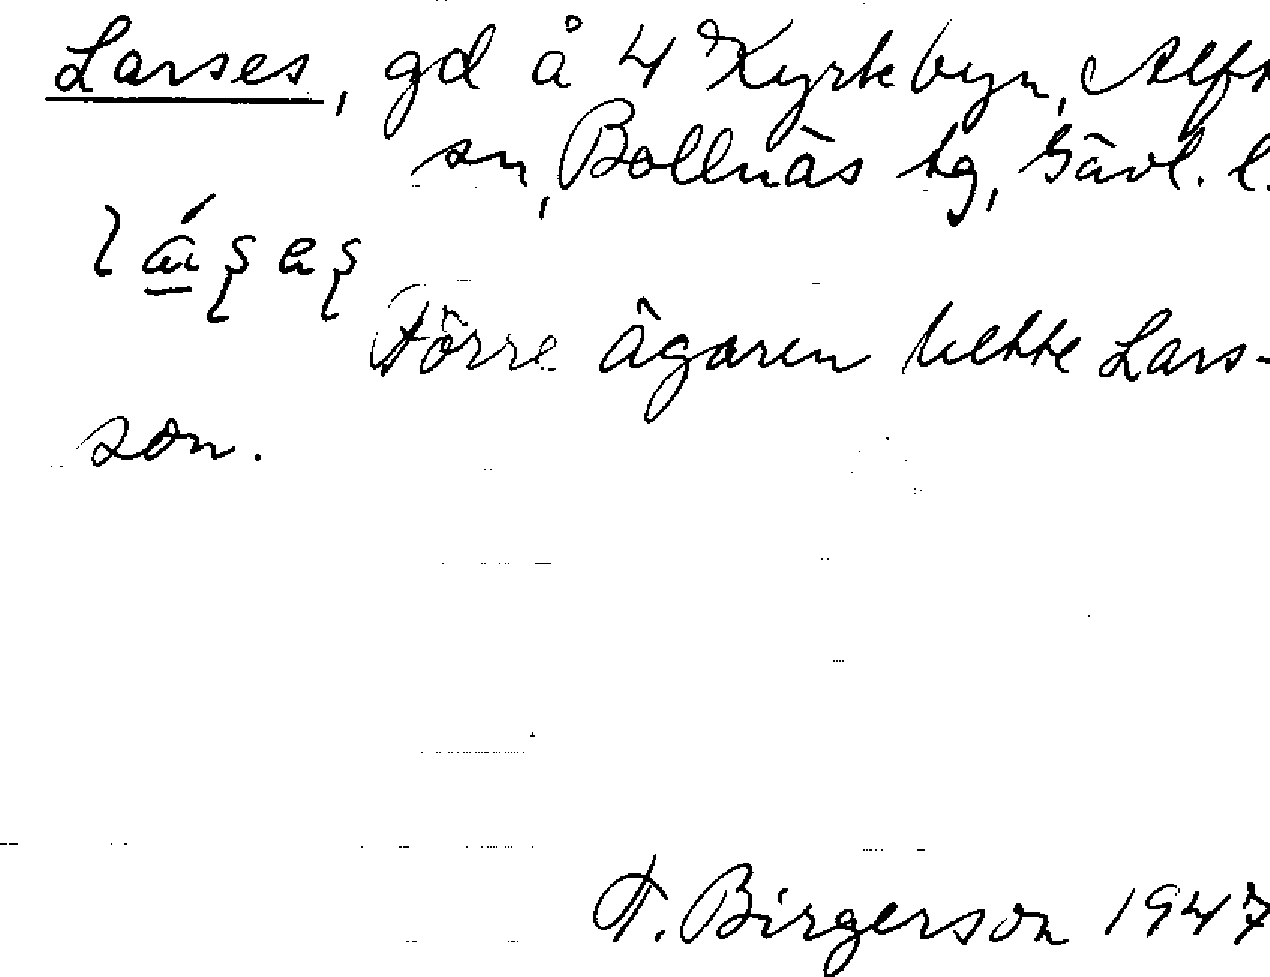 Larses, gd å 4 Kyrkbyn, Alft
sn, Bollnäs tg, Gävl. l.
Förre ägaren hette Lars-
son.
F. Birgerson 1947